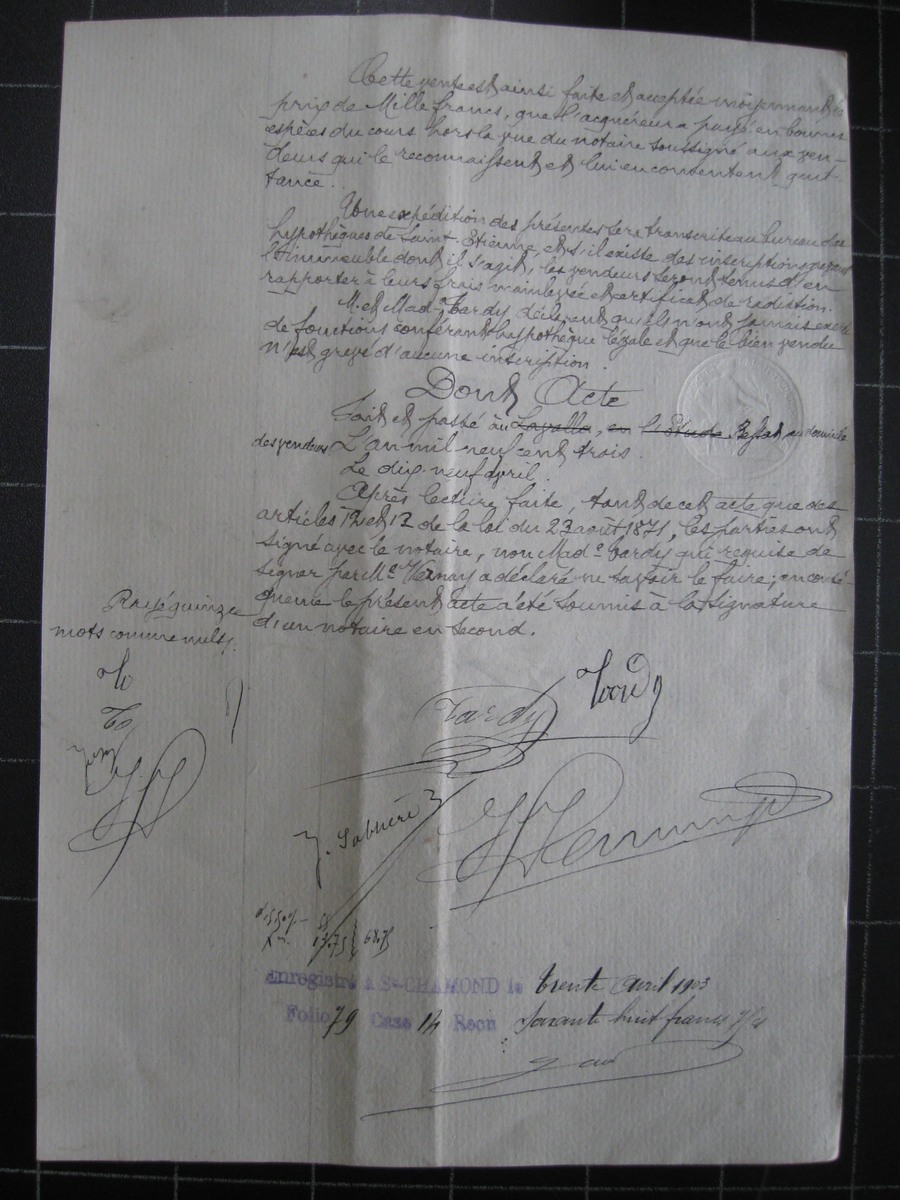 Cette vente est ainsi faite et acceptée moyennant le
prix de Mille francs, que l'acquéreur a payé en bonnes
espèces du cours hors la vue du notaire soussigné aux ven-
deurs qui le reconnaissent et lui en consentent quit-
tance.
Une expédition des présentes sera transcrite au bureau des
hypothèques de Saint-Etienne, et s'il existe des inscriptions grevant
l'immeuble dont il s'agit, les vendeurs seront tenus d'en
rapporter à leurs frais mainlevée et certificat de radiation.
M. et Mad. Tardy déclarent qu'ils n'ont jamais exercé
de fonctions conférant hypothèque légale et que le bien vendu
n'est grevé d'aucune inscription.
Dont Acte
Fait et passé au Layalla, en l'Etude, au domicile
des vendeurs L'an mil neuf cent trois.
Le dix neuf avril.
Après lecture faite, tant de cet acte que des
articles 12 et 13 de la loi du 23 août 1871, les parties ont
signé avec le notaire, non Mad.e Tardy qui requise de
signer par Me a déclaré ne savoir le faire; en consé-
quence le présent acte a été soumis à la signature
d'un notaire en second.
Rayé quinze
mots comme nuls.
Tardy
Tardy
J. Sabnère
13.75 68.75
Enregistré à St-CHAMOND le trente Avril 1903
Folio 79 Case 14 Reçu soixante huit francs 75